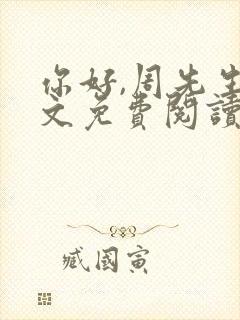 你好,周先生
文免费閱讀
臧國寅